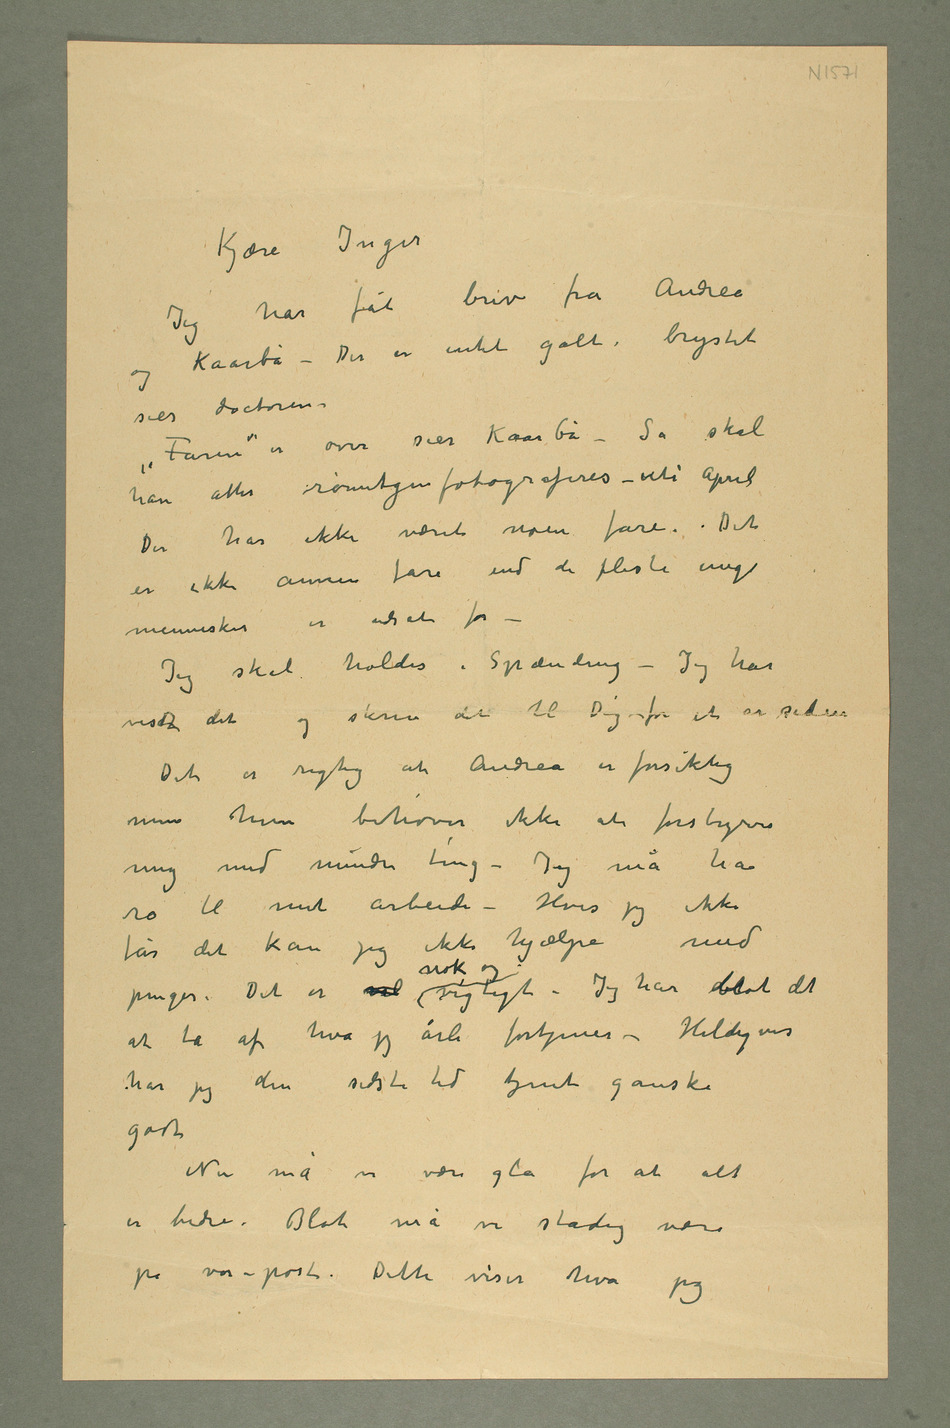 N1571
Kjære Inger
Jeg har fåt brev fra Andrea
og Kaarbå – Der er intet galt i brystet
sier doctoren.
„Faren" er over sier Kaarbå – Så skal
han atter røintgenfotograferes – uti April
Der har ikke været noen fare. Det
er ikke annen fare end de fleste unge
mennesker er udsat for –
Jeg skal holdes i Spænding – Jeg har
vist det og skrev det til Dig for et år siden
Det er rigtig at Andrea er forsiktig
men hun behøver ikke at forstyrre
mig med mindre ting – Jeg må ha
ro til mit arbeide – Hvis jeg ikke
får det kan jeg ikke hjælpe med
penger. Det er nok og vigtigt – Jeg har blot det
at ta af hva jeg årli fortjener – Heldigvis
har jeg den sidste tid tjent ganske
godt
Nu må vi være gla for at alt
er bedre. Blot må vi stadig være
på vor post. Dette viser hva jeg